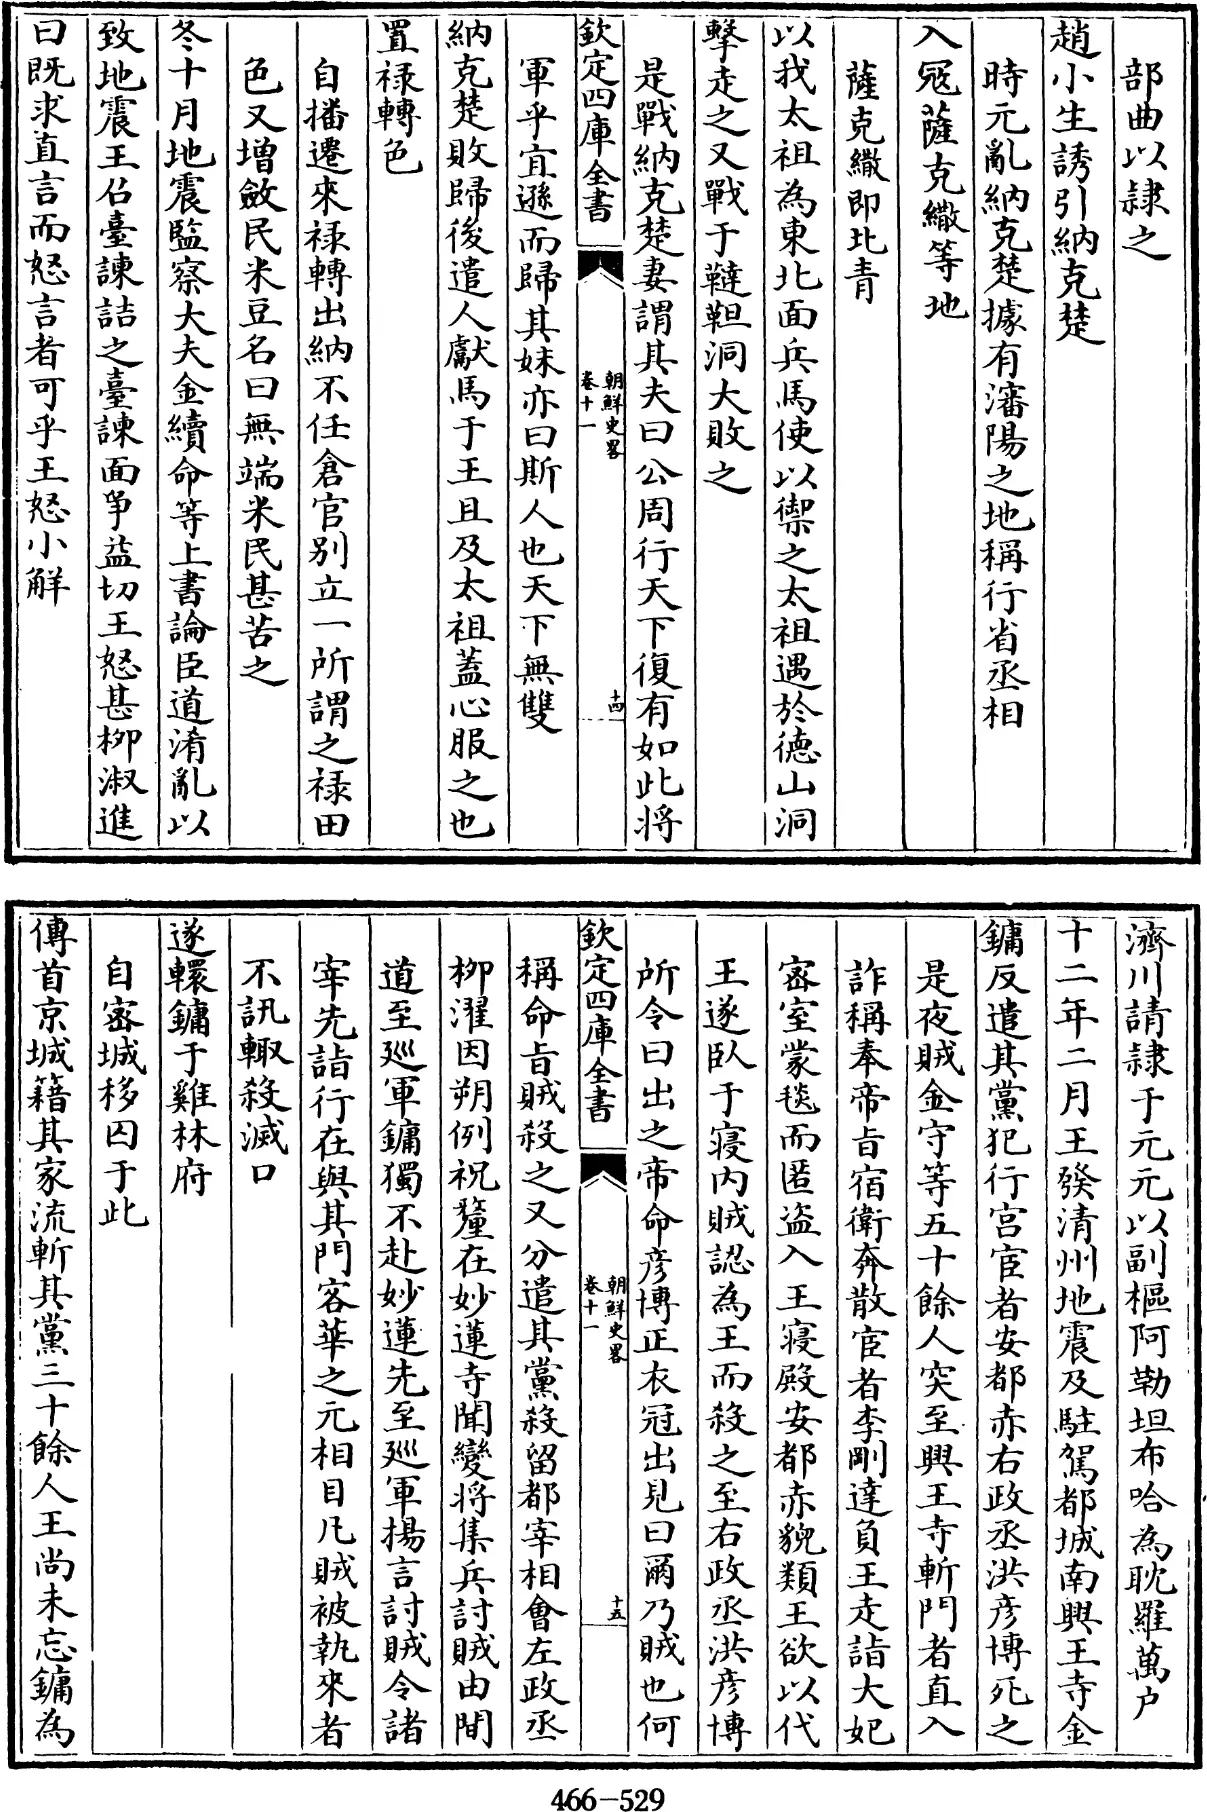 部曲以隷之
趙小生誘引納克楚
時元亂納克楚據有瀋陽之地稱行省丞相
入冦薩克繖等地
薩克繖即北青
以我太祖為東北面兵馬使以禦之太祖遇於德山洞
擊走之又戰于韃靼洞大敗之
是戰納克楚妻謂其夫曰公周行天下復有如此將
欽定四庫全書
朝鮮史畧
卷十一
十四
軍乎宜遜而歸其妹亦曰斯人也天下無雙
納克楚敗歸後遣人獻馬于王且及太祖蓋心服之也
置祿轉色
自播遷來祿轉出納不任倉官别立一所謂之祿田
色又增斂民米豆名曰無端米民甚苦之
冬十月地震監察大夫金續命等上書論臣道淆亂以
致地震王召臺諫詰之臺諫面爭益切王怒甚柳淑進
曰既求直言而怒言者可乎王怒小解
濟川請隷于元元以副樞阿勒坦布哈為耽羅萬户
十二年二月王發清州地震及駐駕都城南興王寺金
鏞反遣其黨犯行宫宦者安都赤右政丞洪彦博死之
是夜賊金守等五十餘人突至興王寺斬門者直入
詐稱奉帝旨宿衛奔散宦者李剛達負王走詣大妃
密室蒙毯而匿盗入王寢殿安都赤貌類王欲以代
王遂臥于寢内賊認為王而殺之至右政丞洪彦博
所令曰出之帝命彦博正衣冠出見曰爾乃賊也何
欽定四庫全書
朝鮮史畧
卷十一
十五
稱命旨賊殺之又分遣其黨殺留都宰相會左政丞
柳濯因朔例祝釐在妙蓮寺聞變將集兵討賊由間
道至廵軍鏞獨不赴妙蓮先至廵軍揚言討賊令諸
宰先詣行在與其門客華之元相目凡賊被執來者
不訊輙殺滅口
遂轘鏞于雞林府
自密城移囚于此
傳首京城籍其家流斬其黨三十餘人王尚未忘鏞為
466-529